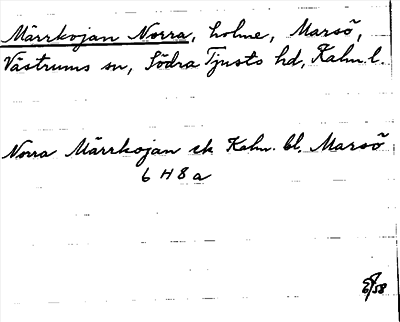 Märrkojan Norra, holme, Marsö,
Västrums sn, Södra Tjusts hd, Kalm. l.
Norra Märrkojan ek Kalm. bl. Marsö
6 H 8 a